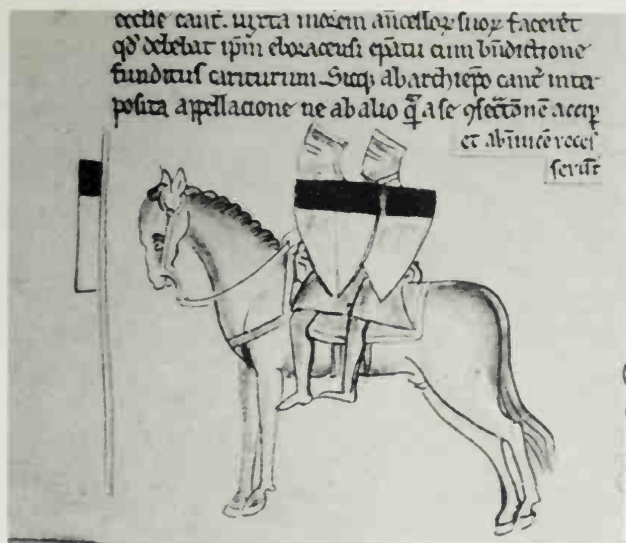 ecclie cant̃. iuxta morem ancellоꝝ suoꝝ faceret
qd̃ debebat ipm̃ eboracensi epatu cum bñdictione
funditus cariturum. Sicqꝫ ab archiepo cant̃ inter
posita appellacione ne ab alio q̃ a se ꝯsectõnẽ accip̃
et abinuicẽ recess
serũt